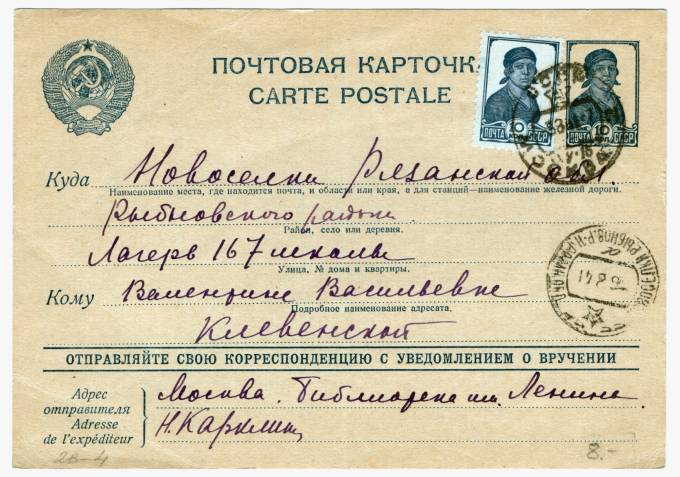 ПОЧТОВАЯ КАРТОЧКА
CARTE POSTALE
ПОЧТА 10 СССР
ПОЧТА 10 СССР
Куда Новоселки Рязанской обл.
Наименование места, где находится почта, и области или края, а для станций—наименование железной дороги.
Рыбновского района
Район, село или деревня.
Лагерь 167 школы
Улица, № дома и квартиры.
Кому Валентине Васильевне
Подробное наименование адресата.
Клевенской
ОТПРАВЛЯЙТЕ СВОЮ КОРРЕСПОНДЕНЦИЮ С УВЕДОМЛЕНИЕМ О ВРУЧЕНИИ
Адрес отправителя
Adresse de l'expéditeur
Москва. Библиотека им. Ленина
Н. Карклин
2В-4
8.-